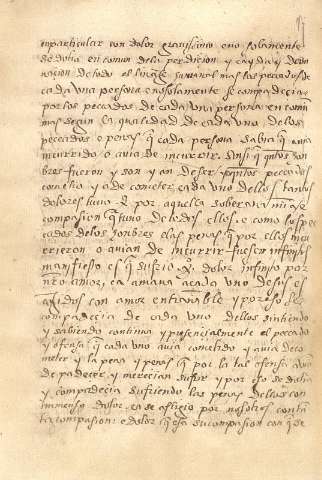 en particular con dolor gravisimo e no solamente
se dolia en comun dela perdicion y cayda y con
nacion de todo el linage humanal mas los peccados de
cada una persona e no solamente se compadecia
por los peccados de cada una persona en comun
mas segun la qualidad de cada uno delos
peccados e penas q cada persona sabia q avia
incurrido o avia de incurrir. Ansi q quantos son
bres fueron y son y an de ser y quantos peccados
cometio y a de cometer cada uno dellos tantos
dolores tuvo por aquella soberana
compasion q tuvo de todos ellos. e como los pec
cados delos honbres e las penas q por ellos incu
rrieron o avian de incurrir fuesen infinitos
manifiesto es q sufrio dolor infinito por
nro amor, ca amava a cada uno destos
con amor entrañable y por eso se
conpadecia de cada uno dellos sintiendo
y sabiendo continua y presencialmente el peccado
y ofensa q cada uno avia cometido y avia de co
meter y la pena y penas q por la tal ofensa avian
de padecer y merecian sufrir y por eso se dolia
y compadecia sufriendo las penas dellos con
inmenso dolor, ca se afligio por nosotros con tan
ta compasion e dolor q esta su compasion con q se